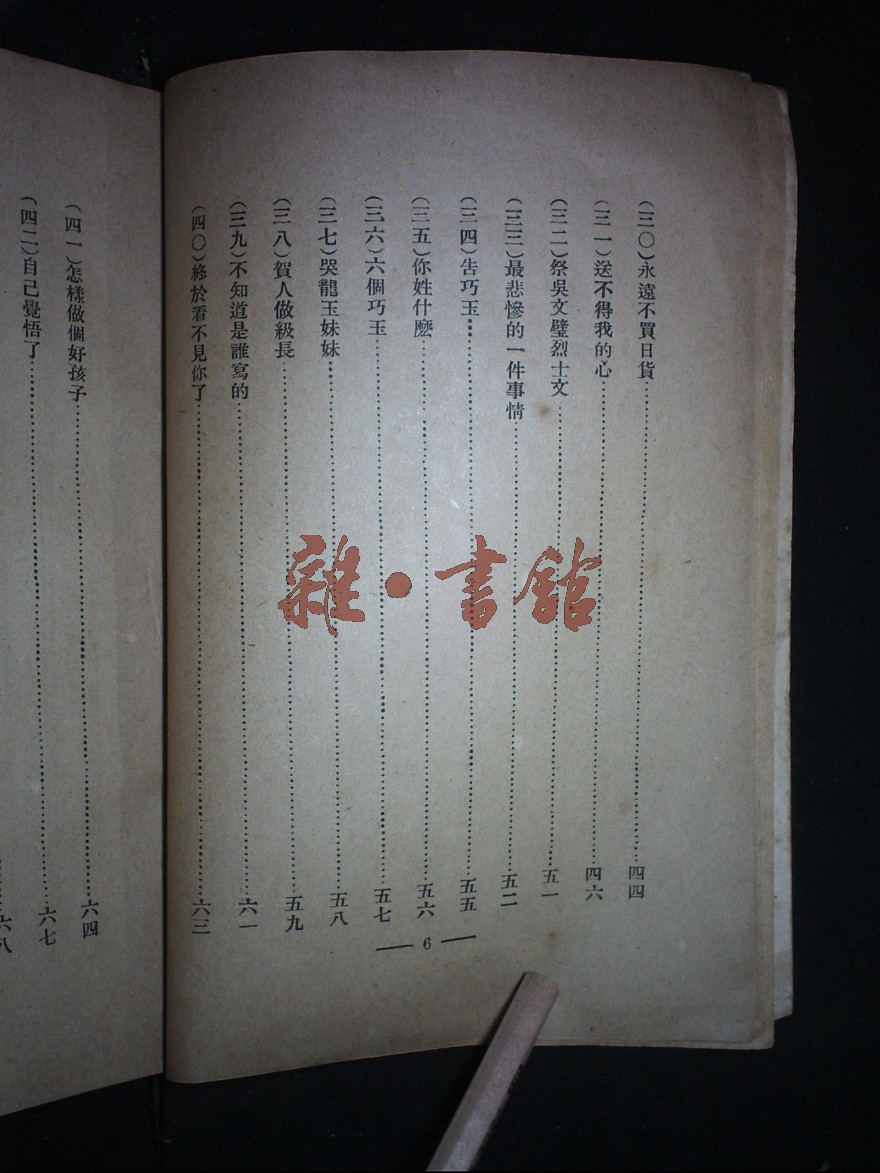 (三〇)永遠不買日貨……四四
(三一)送不得我的心……四六
(三二)祭吳文璧烈士文……五一
(三三)最悲慘的一件事情……五二
(三四)告巧玉……五五
(三五)你姓什麽……五六
(三六)六個巧玉……五七
(三七)哭龍玉妹妹……五八
(三八)賀人做級長……五九
(三九)不知道是誰寫的……六一
(四〇)終於看不見你了……六三
— 6 —
(四一)怎樣做個好孩子……六四
(四二)自己覺悟了……六七
……六八
雜·書館